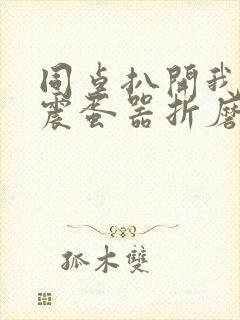 同桌扒開我
震蛋器折磨
孤木雙